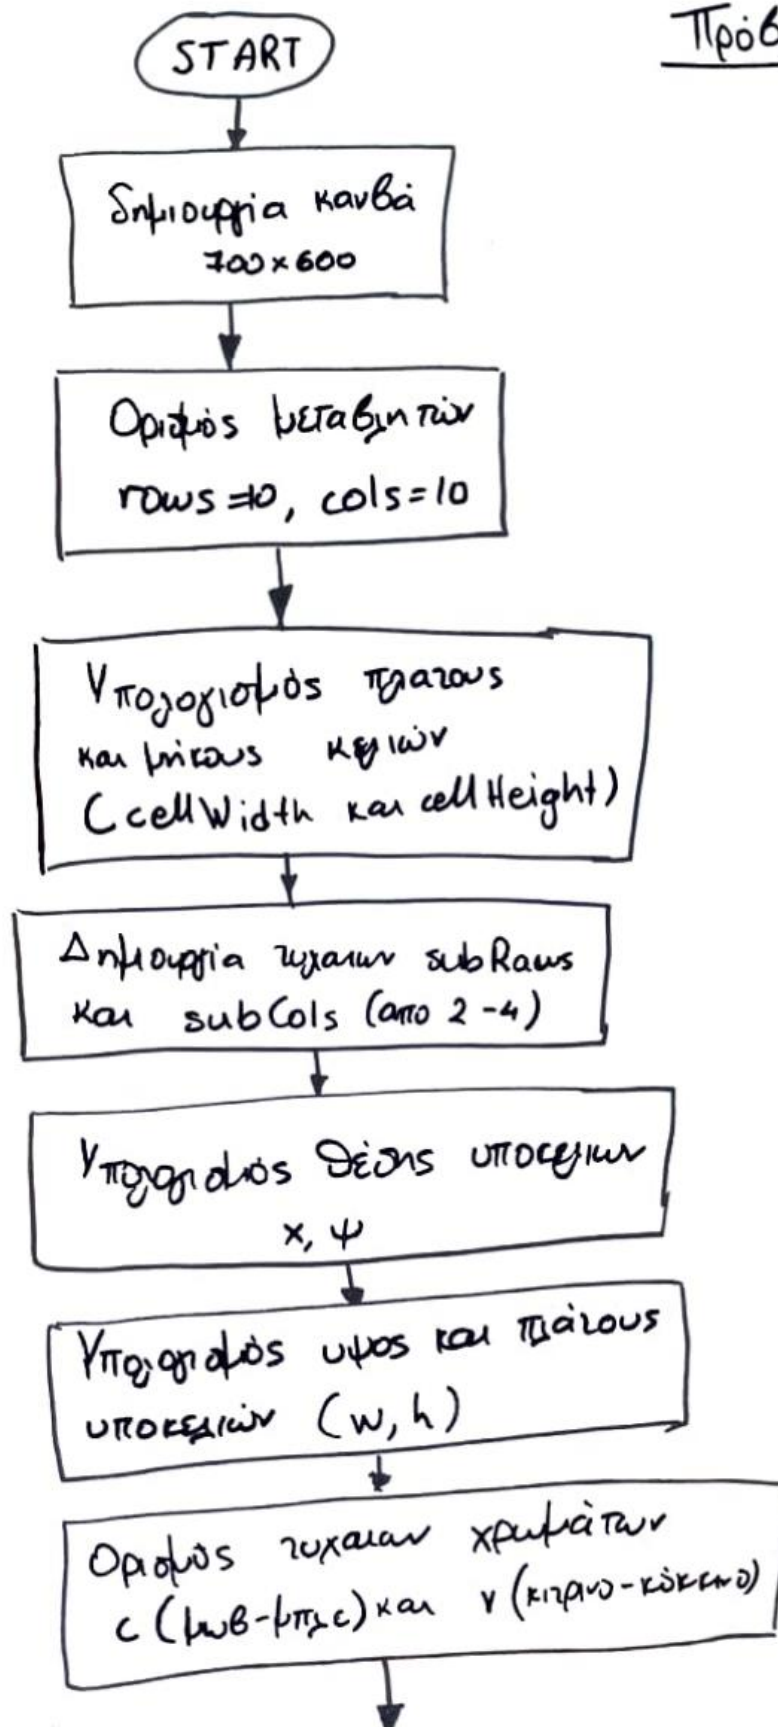 START
Πρόβ
δημιουργία κανβά
700×600
Ορισμός μεταβλητών
rows=10, cols=10
Υπολογισμός πλατους
και μήκους κελιών
(cellWidth και cellHeight)
Δημιουργία τυχαιων subRaws
και subCols (απο 2-4)
Υπολογισμός θέσης υποκελιων
x, ψ
Υπολογισμός υψος και πλάτους
υποκελιών (w, h)
Ορισμός τυχαιων χρωμάτων
c (μωβ-μπλε) και v (κιτρινο-κόκκινο)